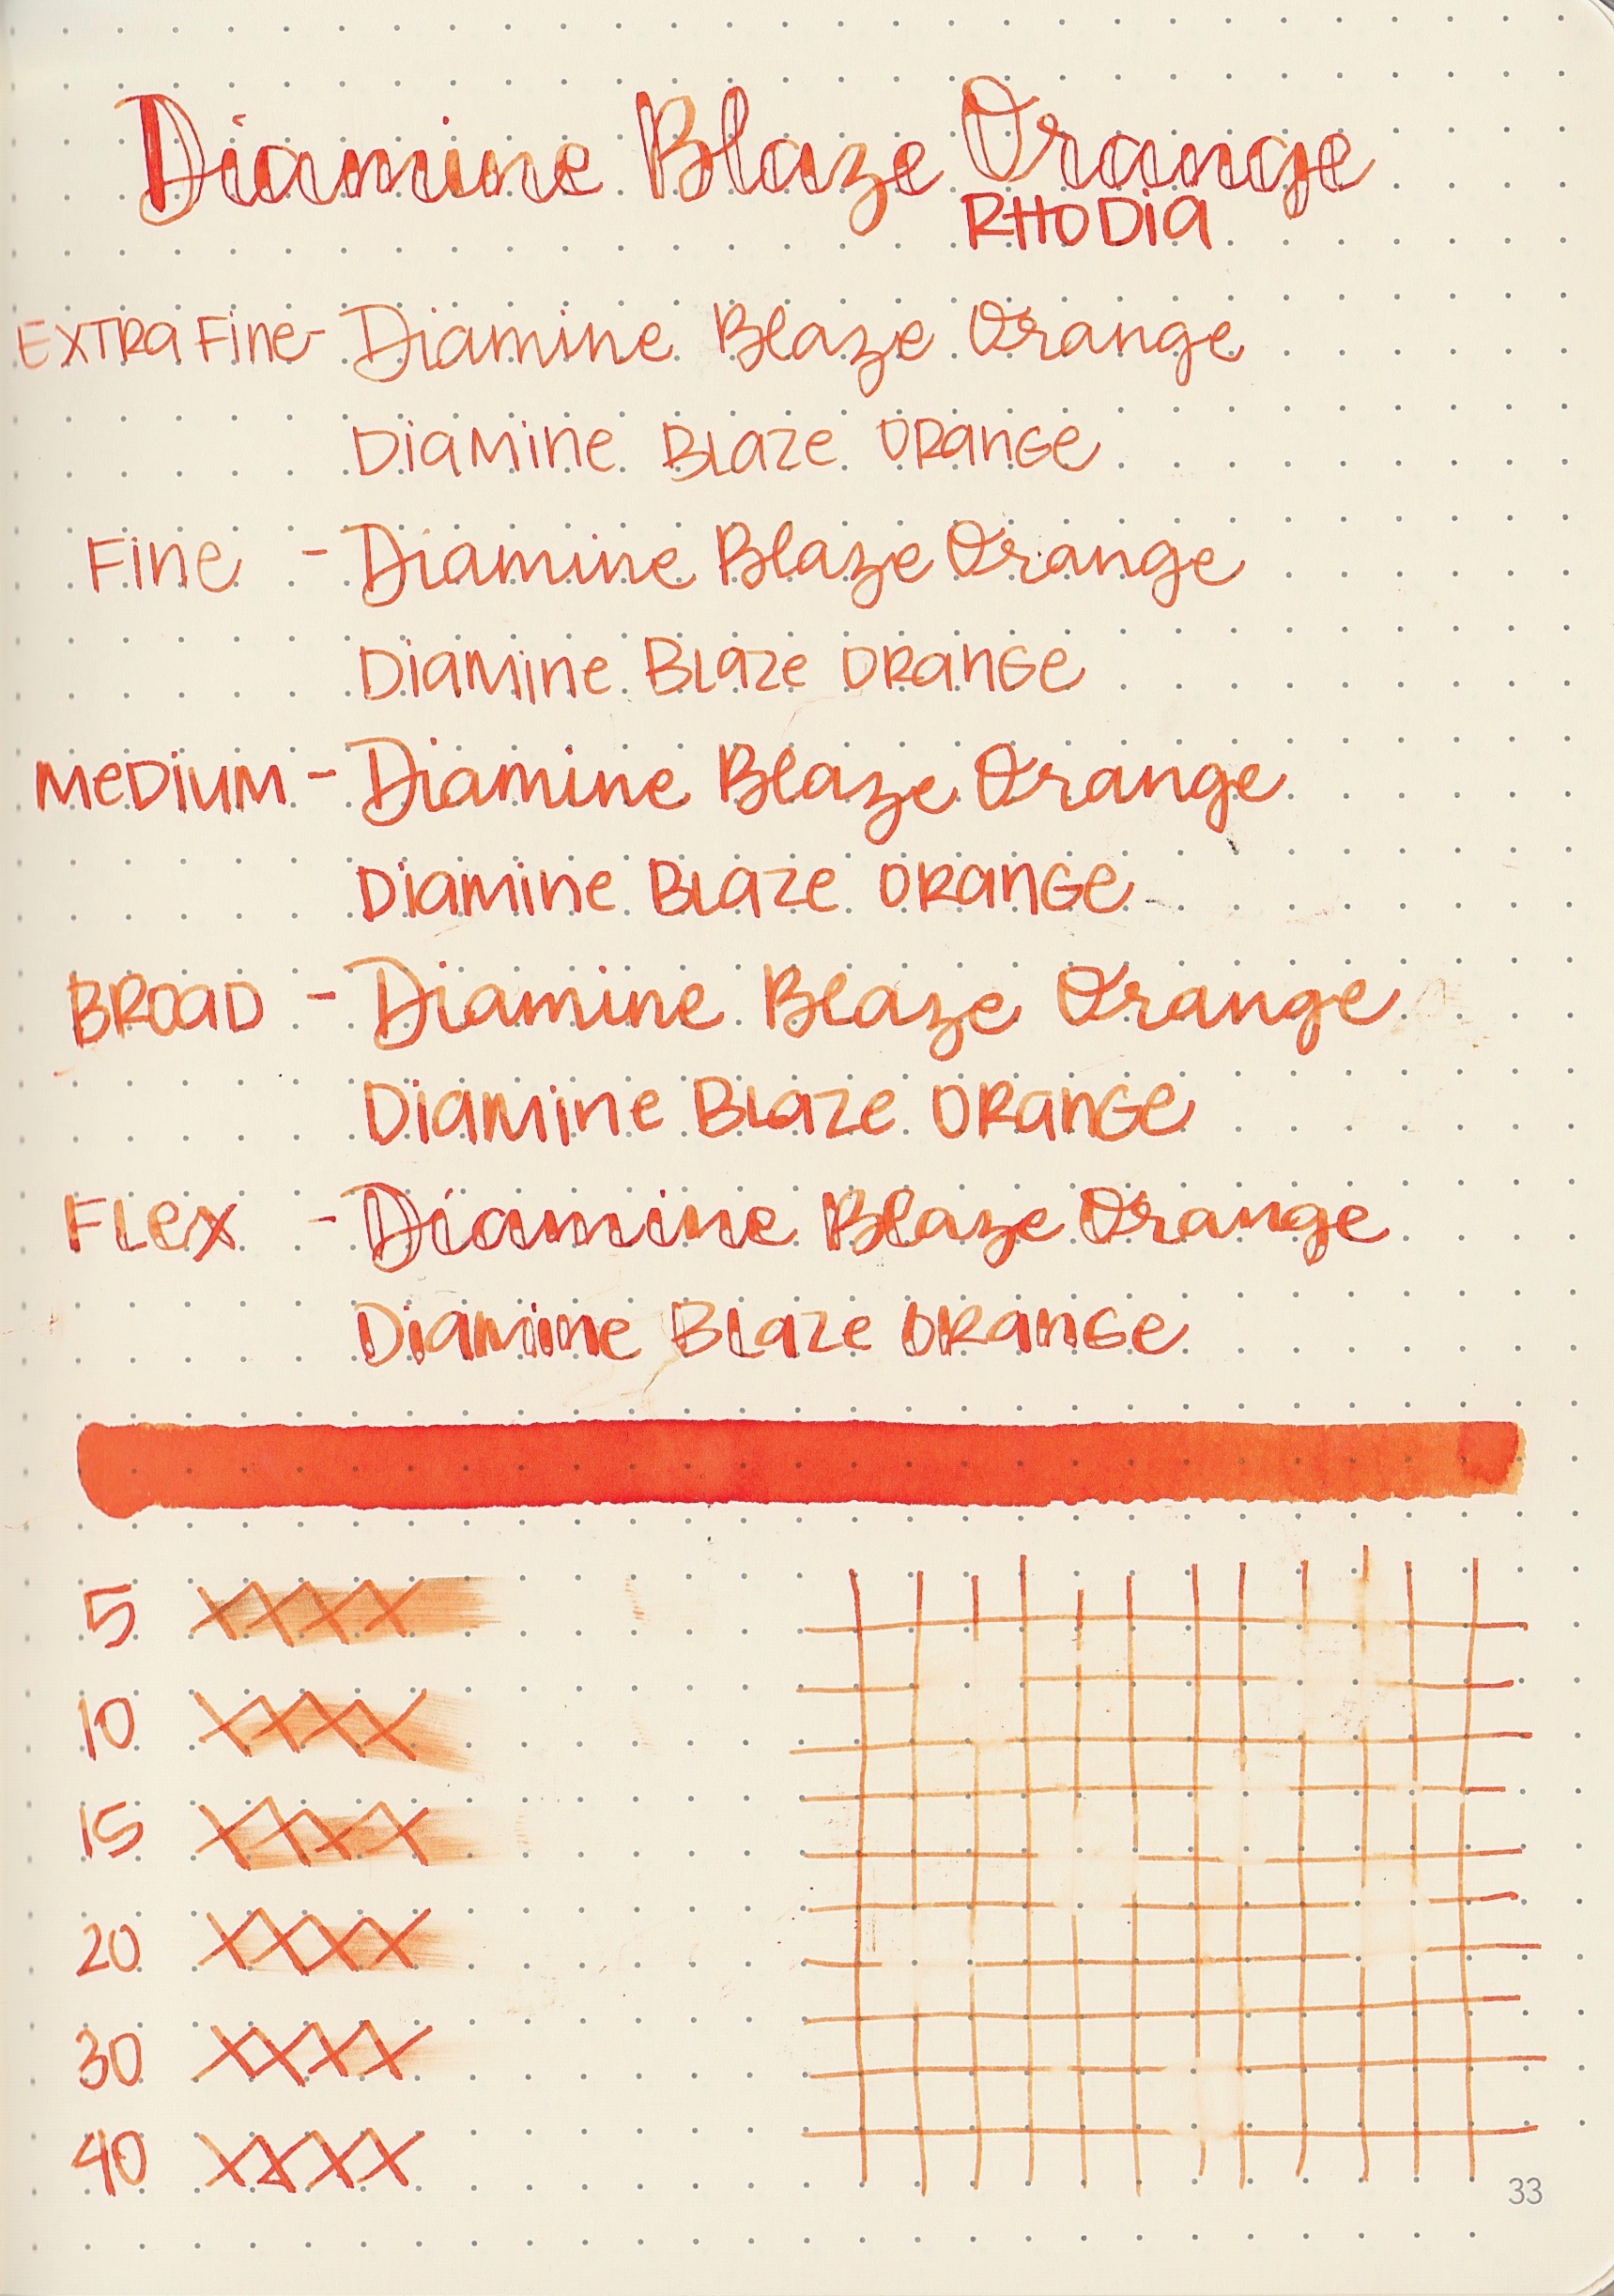 Diamine Blaze Orange
RHODIA
EXTRA FINE - Diamine Blaze Orange
DIAMINE BLAZE ORANGE
FINE - Diamine Blaze Orange
DIAMINE BLAZE ORANGE
MEDIUM - Diamine Blaze Orange
DIAMINE BLAZE ORANGE
BROAD - Diamine Blaze Orange
DIAMINE BLAZE ORANGE
FLEX - Diamine Blaze Orange
DIAMINE BLAZE ORANGE
5 XXXX
10 XXXX
15 XXXX
20 XXXX
30 XXXX
40 XXXX
33